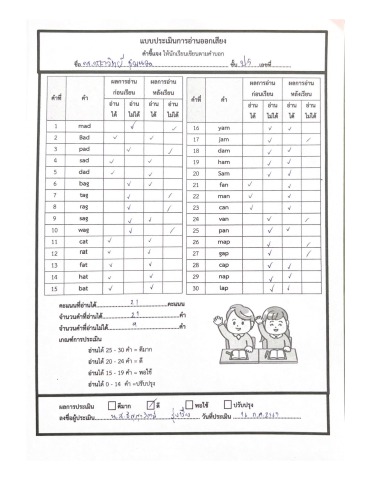 แบบประเมินการอ่านออกเสียง
คำชี้แจง ให้นักเรียนเขียนตามคำบอก
ชื่อ ชั้น ป.5 เลขที่
คำที่ คำ ผลการอ่านก่อนเรียน ผลการอ่านหลังเรียน
อ่านได้ อ่านไม่ได้ อ่านได้ อ่านไม่ได้
1 mad ✓ ✓
2 Bad ✓ ✓
3 pad ✓ ✓
4 sad ✓ ✓
5 dad ✓ ✓
6 bag ✓ ✓
7 tag ✓ ✓
8 rag ✓ ✓
9 sag ✓ ✓
10 wag ✓ ✓
11 cat ✓ ✓
12 rat ✓ ✓
13 fat ✓ ✓
14 hat ✓ ✓
15 bat ✓ ✓
คำที่ คำ ผลการอ่านก่อนเรียน ผลการอ่านหลังเรียน
อ่านได้ อ่านไม่ได้ อ่านได้ อ่านไม่ได้
16 yam ✓ ✓
17 jam ✓ ✓
18 dam ✓ ✓
19 ham ✓ ✓
20 Sam ✓ ✓
21 fan ✓ ✓
22 man ✓ ✓
23 can ✓ ✓
24 van ✓ ✓
25 pan ✓ ✓
26 map ✓ ✓
27 gap ✓ ✓
28 cap ✓ ✓
29 nap ✓ ✓
30 lap ✓ ✓
คะแนนที่อ่านได้ 21 คะแนน
จำนวนคำที่อ่านได้ 21 คำ
จำนวนคำที่อ่านไม่ได้ 9 คำ
เกณฑ์การประเมิน
อ่านได้ 25 - 30 คำ = ดีมาก
อ่านได้ 20 - 24 คำ = ดี
อ่านได้ 15 - 19 คำ = พอใช้
อ่านได้ 0 - 14 คำ =ปรับปรุง
ผลการประเมิน ดีมาก ✓ ดี พอใช้ ปรับปรุง
ลงชื่อผู้ประเมิน วันที่ประเมิน